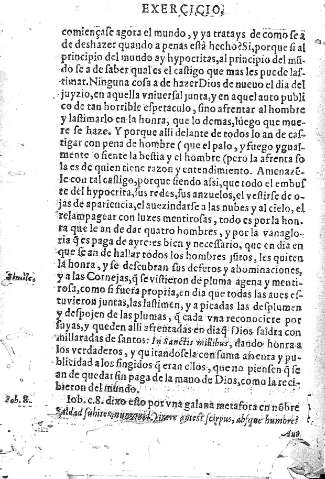 EXERCICIO.
comiençase agora el mundo, y ya tratays de como se a
de deshazer quando a penas està hecho? Si, porque si al
principio del mundo ay hypocritas, al principio del mũ-
do se a de saber qual es el castigo que mas les puede las-
timar. Ninguna cosa a de hazer Dios de nueuo el dia del
juyzio, en aquella vniuersal junta, y en aquel auto publi
co de tan horrible espetaculo, sino afrentar al hombre
y lastimarlo en la honra, que lo demas, luego que mue-
re se haze. Y porque alli delante de todos lo an de cas-
tigar con pena de hombre (que el palo, y fuego ygual-
mente o siente la bestia y el hombre (pero la afrenta so
la es de quien tiene razon y entendimiento. Amenaze-
le con tal castigo, porque siendo assi, que todo el embus
te del hypocrita, sus redes, sus anzuelos, el vestirse de o-
jas de apariencia, el auezindarse a las nubes y al cielo, el
relampagear con luzes mentirosas, todo es por la hon-
ra que le an de dar quatro hombres, y por la vanaglo-
ria q̃ es paga de ayre: es bien y necessario, que en dia en
que se an de hallar todos los hombres jũtos, les quiten
la honra, y se descubran sus defetos y abominaciones,
Simile,
y a las Cornejas, q̃ se vistieron de pluma agena y menti-
rosa, como si fuera propria, en dia que todas las aues es-
tuuieron juntas, las lastimen, y a picadas las desplumen
y despojen de las plumas, q̃ cada vna reconociere por
suyas, y queden alli afrentadas en dia q̃ Dios saldra con
millaradas de santos: In Sanctis millibus, dando honra a
los verdaderos, y quitandosela con suma afrenta y pu-
blicidad a los fingidos q̃ eran ellos, que no piensen q̃ se
an de quedar sin paga de la mano de Dios, como la reci-
bieron del mundo.
Iob. 8.
Iob. c. 8. dixo esto por vna galana metafora en nõbre
Baldad suhites, nunquid virere potest scirpus, absque humore?